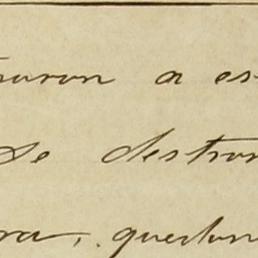 uraron a es
se destron
ra, quedan